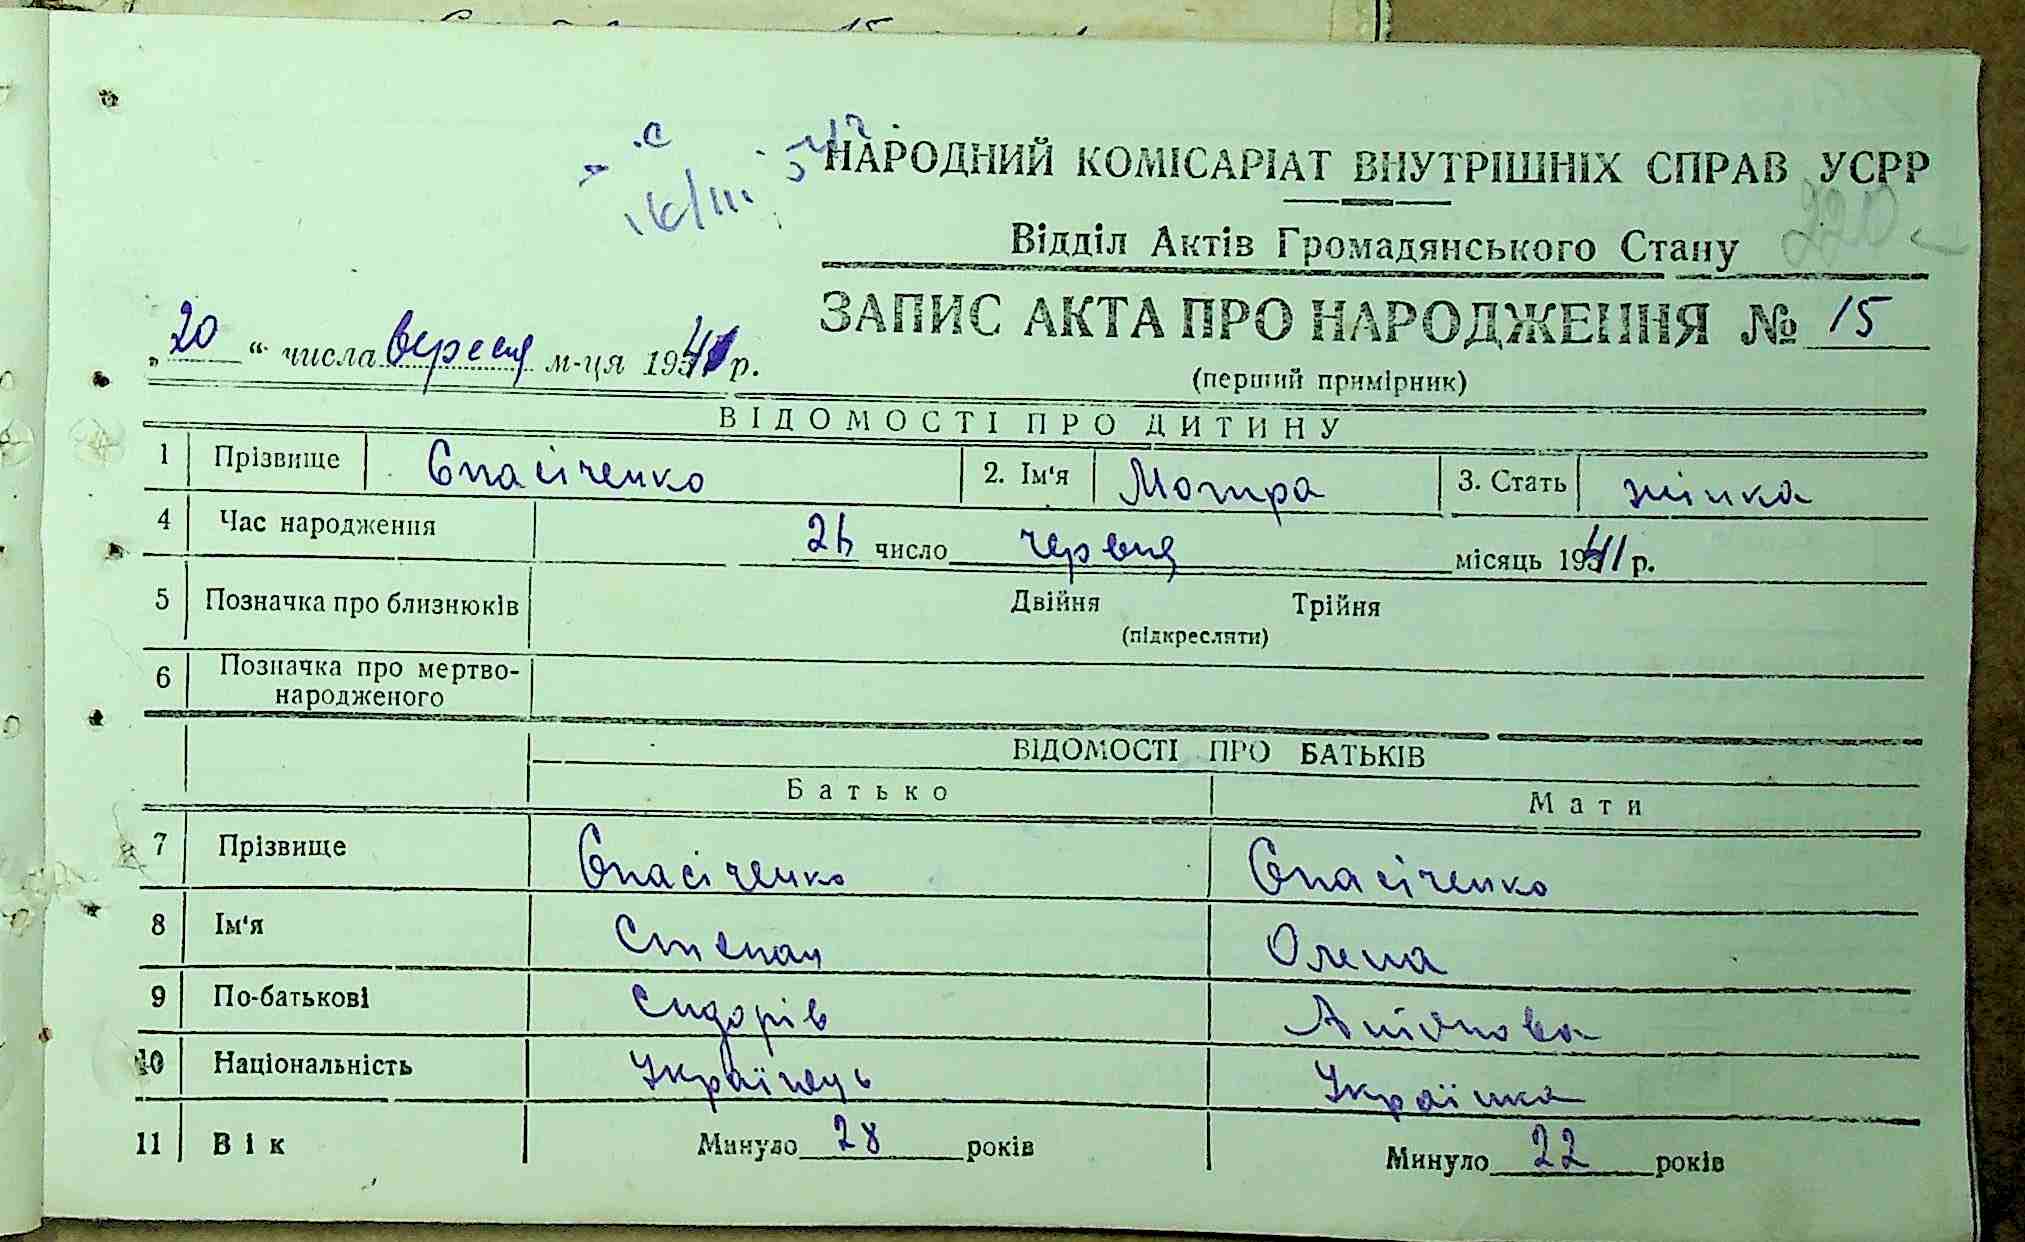 НАРОДНИЙ КОМІСАРІАТ ВНУТРІШНІХ СПРАВ УСРР
220
Відділ Актів Громадянського Стану
ЗАПИС АКТА ПРО НАРОДЖЕННЯ № 15
„20“ числа вересня м-ця 1941 р.
(перший примірник)
ВІДОМОСТІ ПРО ДИТИНУ
1 Прізвище Спасіченко 2. Ім'я Мотря 3. Стать жінка
4 Час народження 26 число червня місяць 1941 р.
5 Позначка про близнюків Двійня Трійня
(підкресляти)
6 Позначка про мертво-
народженого
ВІДОМОСТІ ПРО БАТЬКІВ
Батько Мати
7 Прізвище Спасіченко Спасіченко
8 Ім'я Степан Олена
9 По-батькові Сидорів
10 Національність Українець Українка
11 Вік Минуло 28 років Минуло 22 років